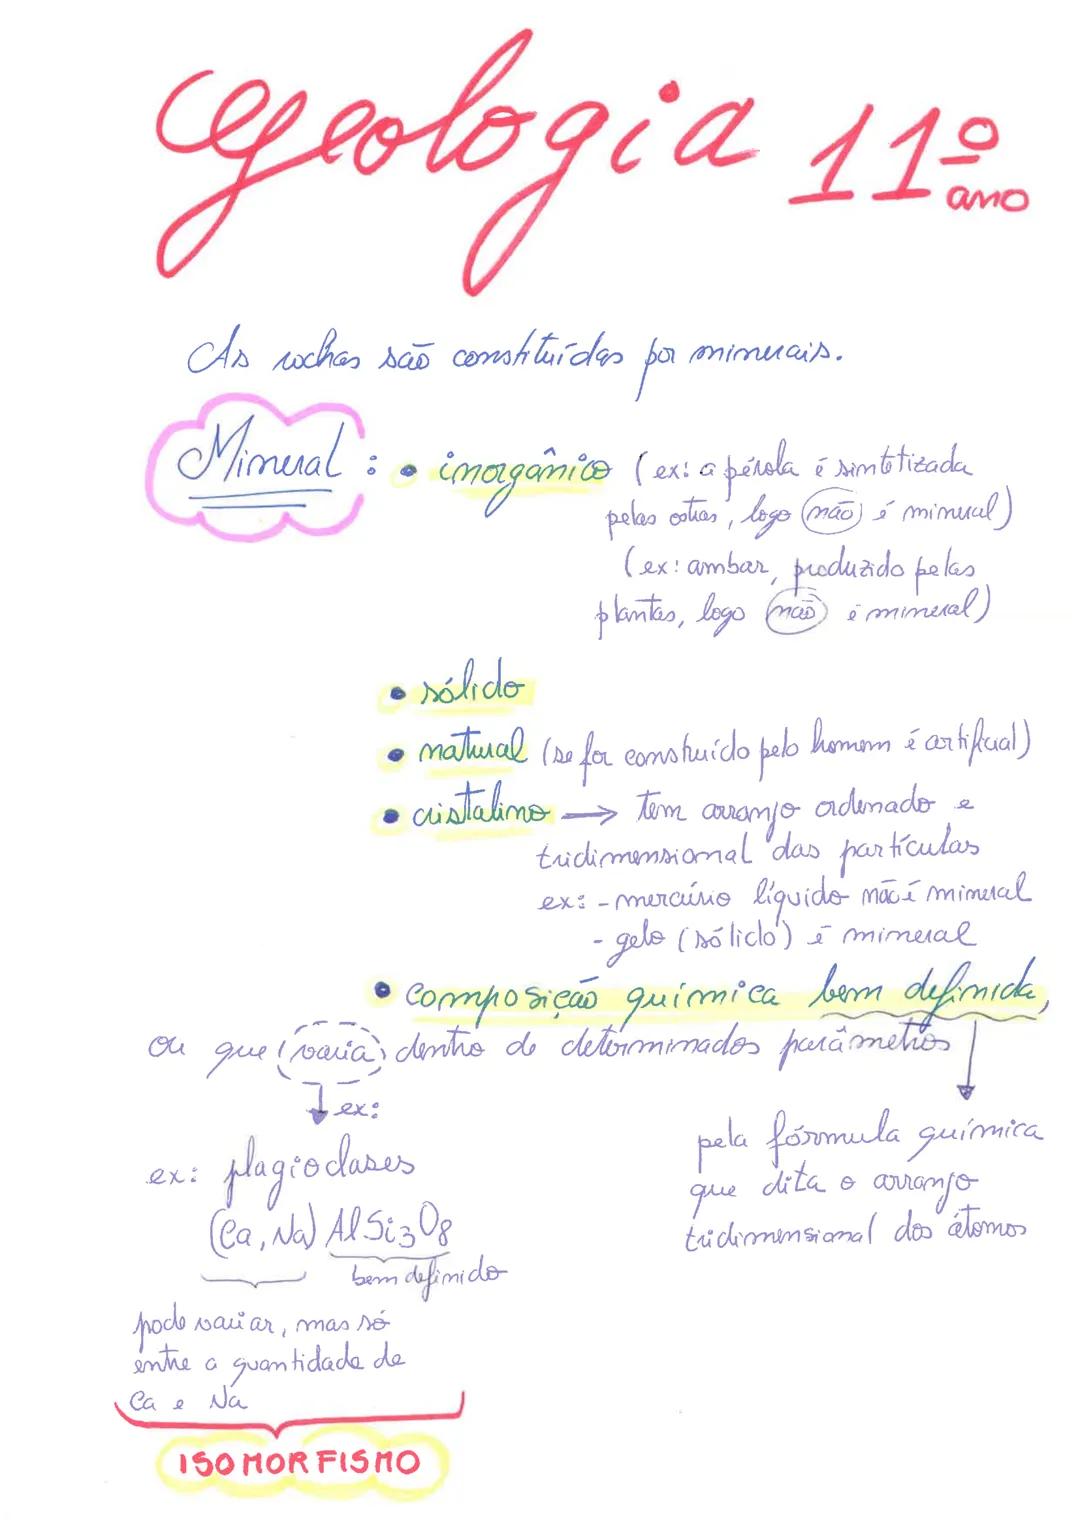 Geologia 11º
ano
As rochas são constituídas por minerais.
Mineral : • inorgânico (ex: a pérola é sintetizada
pelas ostras, logo não é mineral)
(ex: ambar, produzido pelas
plantas, logo não é mineral)
• sólido
• natural (se for construído pelo homem é artificial)
• cristalino → tem arranjo ordenado e
tridimensional das partículas
ex: - mercúrio líquido não é mineral
- gelo (sólido) é mineral
• composição química bem definida,
ou que varia dentro de determinados parâmetros
↓ ex:
ex: plagioclases
(Ca, Na) AlSi3O8
bem definido
pode variar, mas só
entre a quantidade de
Ca e Na
ISOMORFISMO
pela fórmula química
que dita o arranjo
tridimensional dos átomos